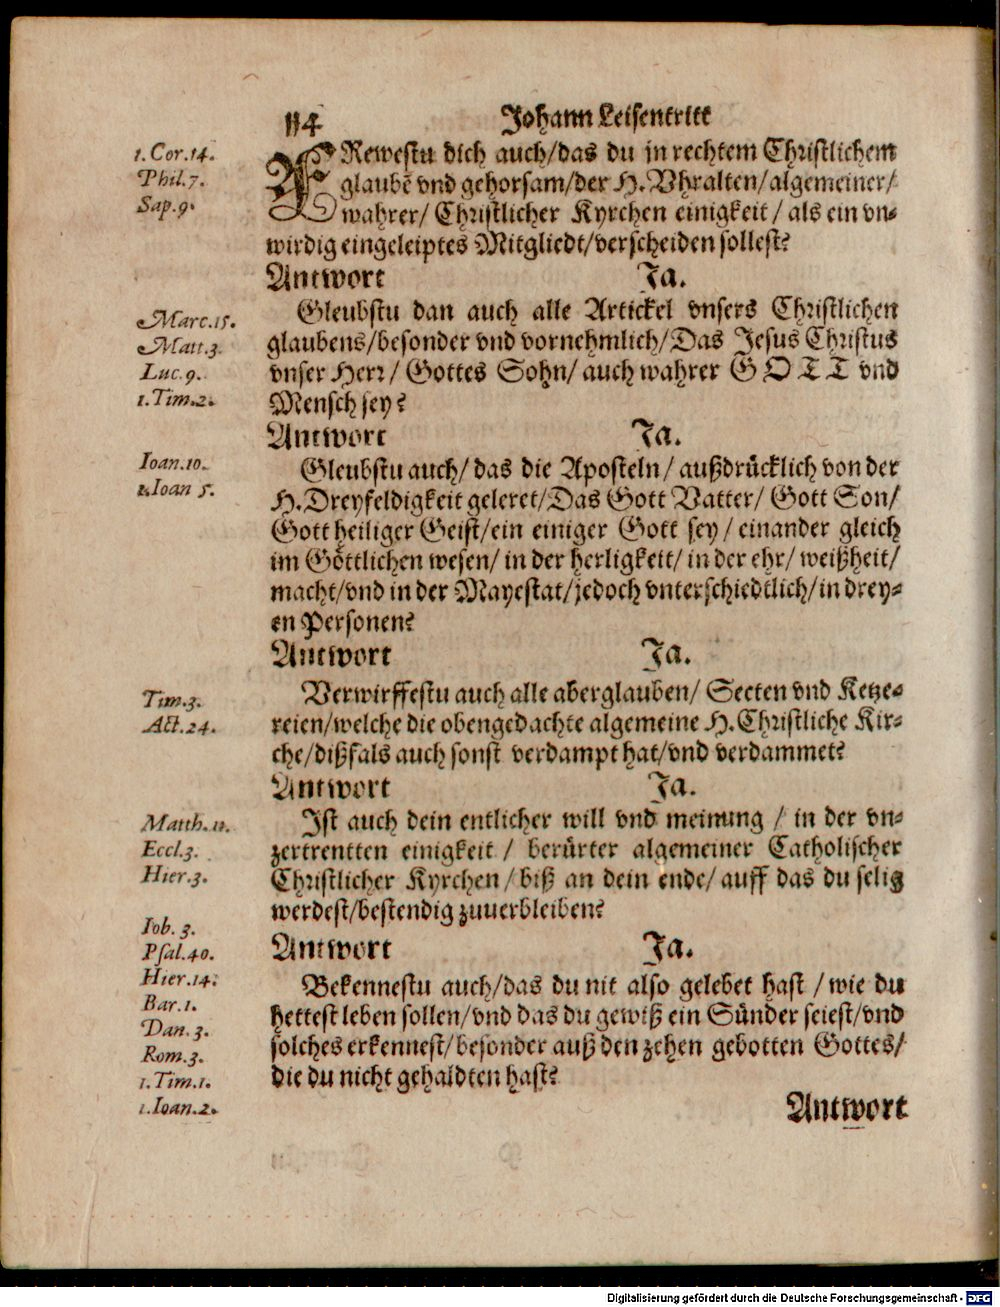 114 Johann Leisentritt
1. Cor. 14.
Phil. 7.
Sap. 9.
FRewestu dich auch/das du in rechtem Christlichem
glaubẽ vnd gehorsam/der H. Vhralten/algemeiner/
wahrer/ Christlicher Kyrchen einigkeit/ als ein vn⸗
wirdig eingeleiptes Mitgliedt/verscheiden sollest?
Antwort Ja.
Marc. 15.
Matt. 3.
Luc. 9.
1. Tim. 2.
Gleubstu dan auch alle Artickel vnsers Christlichen
glaubens/besonder vnd vornehmlich/Das Jesus Christus
vnser Herr/ Gottes Sohn/ auch wahrer GOTT vnd
Mensch sey?
Antwort Ja.
Ioan. 10.
1. Ioan 5.
Gleubstu auch/ das die Aposteln/ außdrücklich von der
H. Dreyfeldigkeit geleret/Das Gott Vatter/ Gott Son/
Gott heiliger Geist/ein einiger Gott sey/ einander gleich
im Göttlichen wesen/ in der herligkeit/ in der ehr/ weißheit/
macht/vnd in der Mayestat/jedoch vnterschiedtlich/in drey⸗
en Personen?
Antwort Ja.
Tim. 3.
Act. 24.
Verwirffestu auch alle aberglauben/ Secten vnd Ketze⸗
reien/welche die obengedachte algemeine H. Christliche Kir⸗
che/dißfals auch sonst verdampt hat/vnd verdammet?
Antwort Ja.
Matth. 11.
Eccl. 3.
Hier. 3.
Ist auch dein entlicher will vnd meinung / in der vn⸗
zertrentten einigkeit / berürter algemeiner Catholischer
Christlicher Kyrchen/ biß an dein ende/ auff das du selig
werdest/bestendig zuuerbleiben?
Antwort Ja.
Iob. 3.
Psal. 40.
Hier. 14.
Bar. 1.
Dan. 3.
Rom. 3.
1. Tim. 1.
1. Ioan. 2.
Bekennestu auch/das du nit also gelebet hast / wie du
hettest leben sollen/vnd das du gewiß ein Sünder seiest/vnd
solches erkennest/besonder auß den zehen gebotten Gottes/
die du nicht gehaldten hast?
Antwort
Digitalisierung gefördert durch die Deutsche Forschungsgemeinschaft - DFG